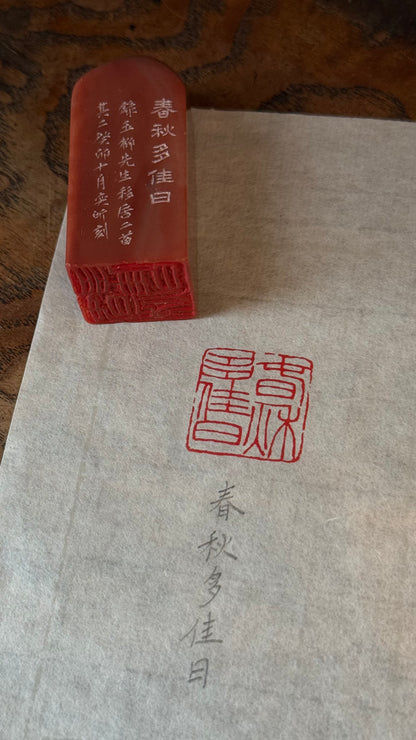 春秋多佳日
錄五柳先生移居二首
其二癸卯十月刻
春秋
多佳日
春秋多佳日